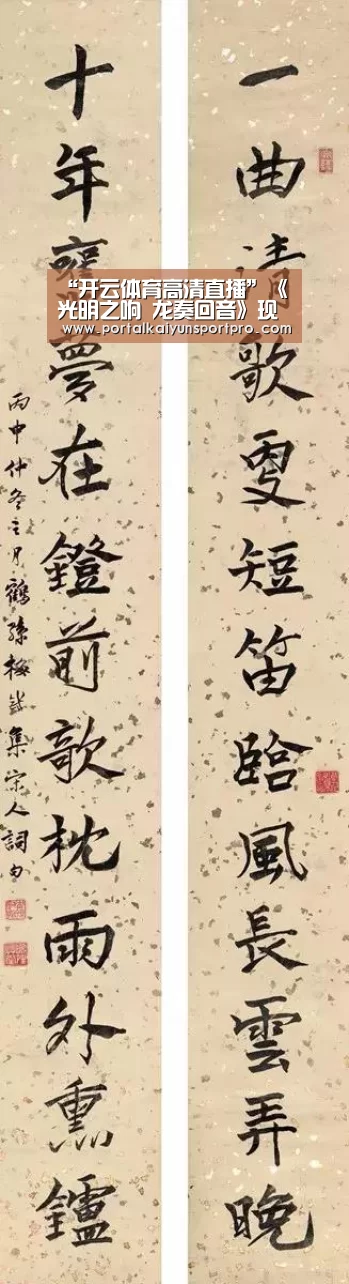 一曲清歌㪅短笛臨風長雲弄晚
十年夢在鐙前欹枕雨外熏鑪
丙申仲冬之月鶴孫集宋人詞句
“开云体育高清直播” 《
光明之响 龙奏回音》现
www.portalkaiyunsportpro.com